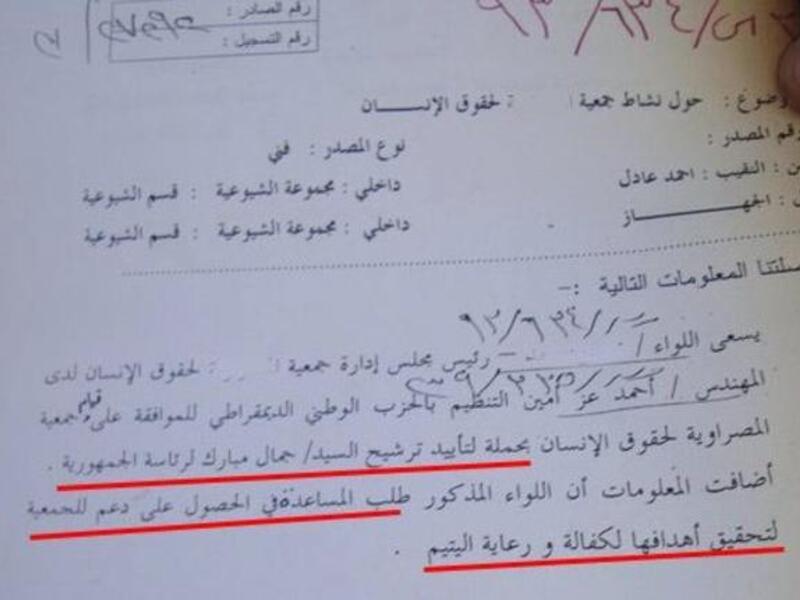 رقم الصادر :
رقم التسجيل :
٩٣/٦٣٤/
وضوع : حول نشاط جمعية لحقوق الإنســـان
رقم المصدر : نوع المصدر : فني
ن : النقيب : احمد عادل داخلي : مجموعة الشيوعية : قسم الشيوعية
ى : الجهـــــــاز داخلي : مجموعة الشيوعية : قسم الشيوعية
صلتنا المعلومات التالية :-
٩٣/٦٣٤/
يسعى اللواء / - رئيس مجلس إدارة جمعية لحقوق الإنسان لدى
المهندس / أحمد عز أمين التنظيم بالحزب الوطني الديمقراطي للموافقة على قيام جمعية
المصراوية لحقوق الإنسان بحملة لتأييد ترشيح السيد/ جمال مبارك لرئاسة الجمهورية .
أضافت المعلومات أن اللواء المذكور طلب المساعدة في الحصول على دعم للجمعية
لتحقيق أهدافها لكفالة و رعاية اليتيم .